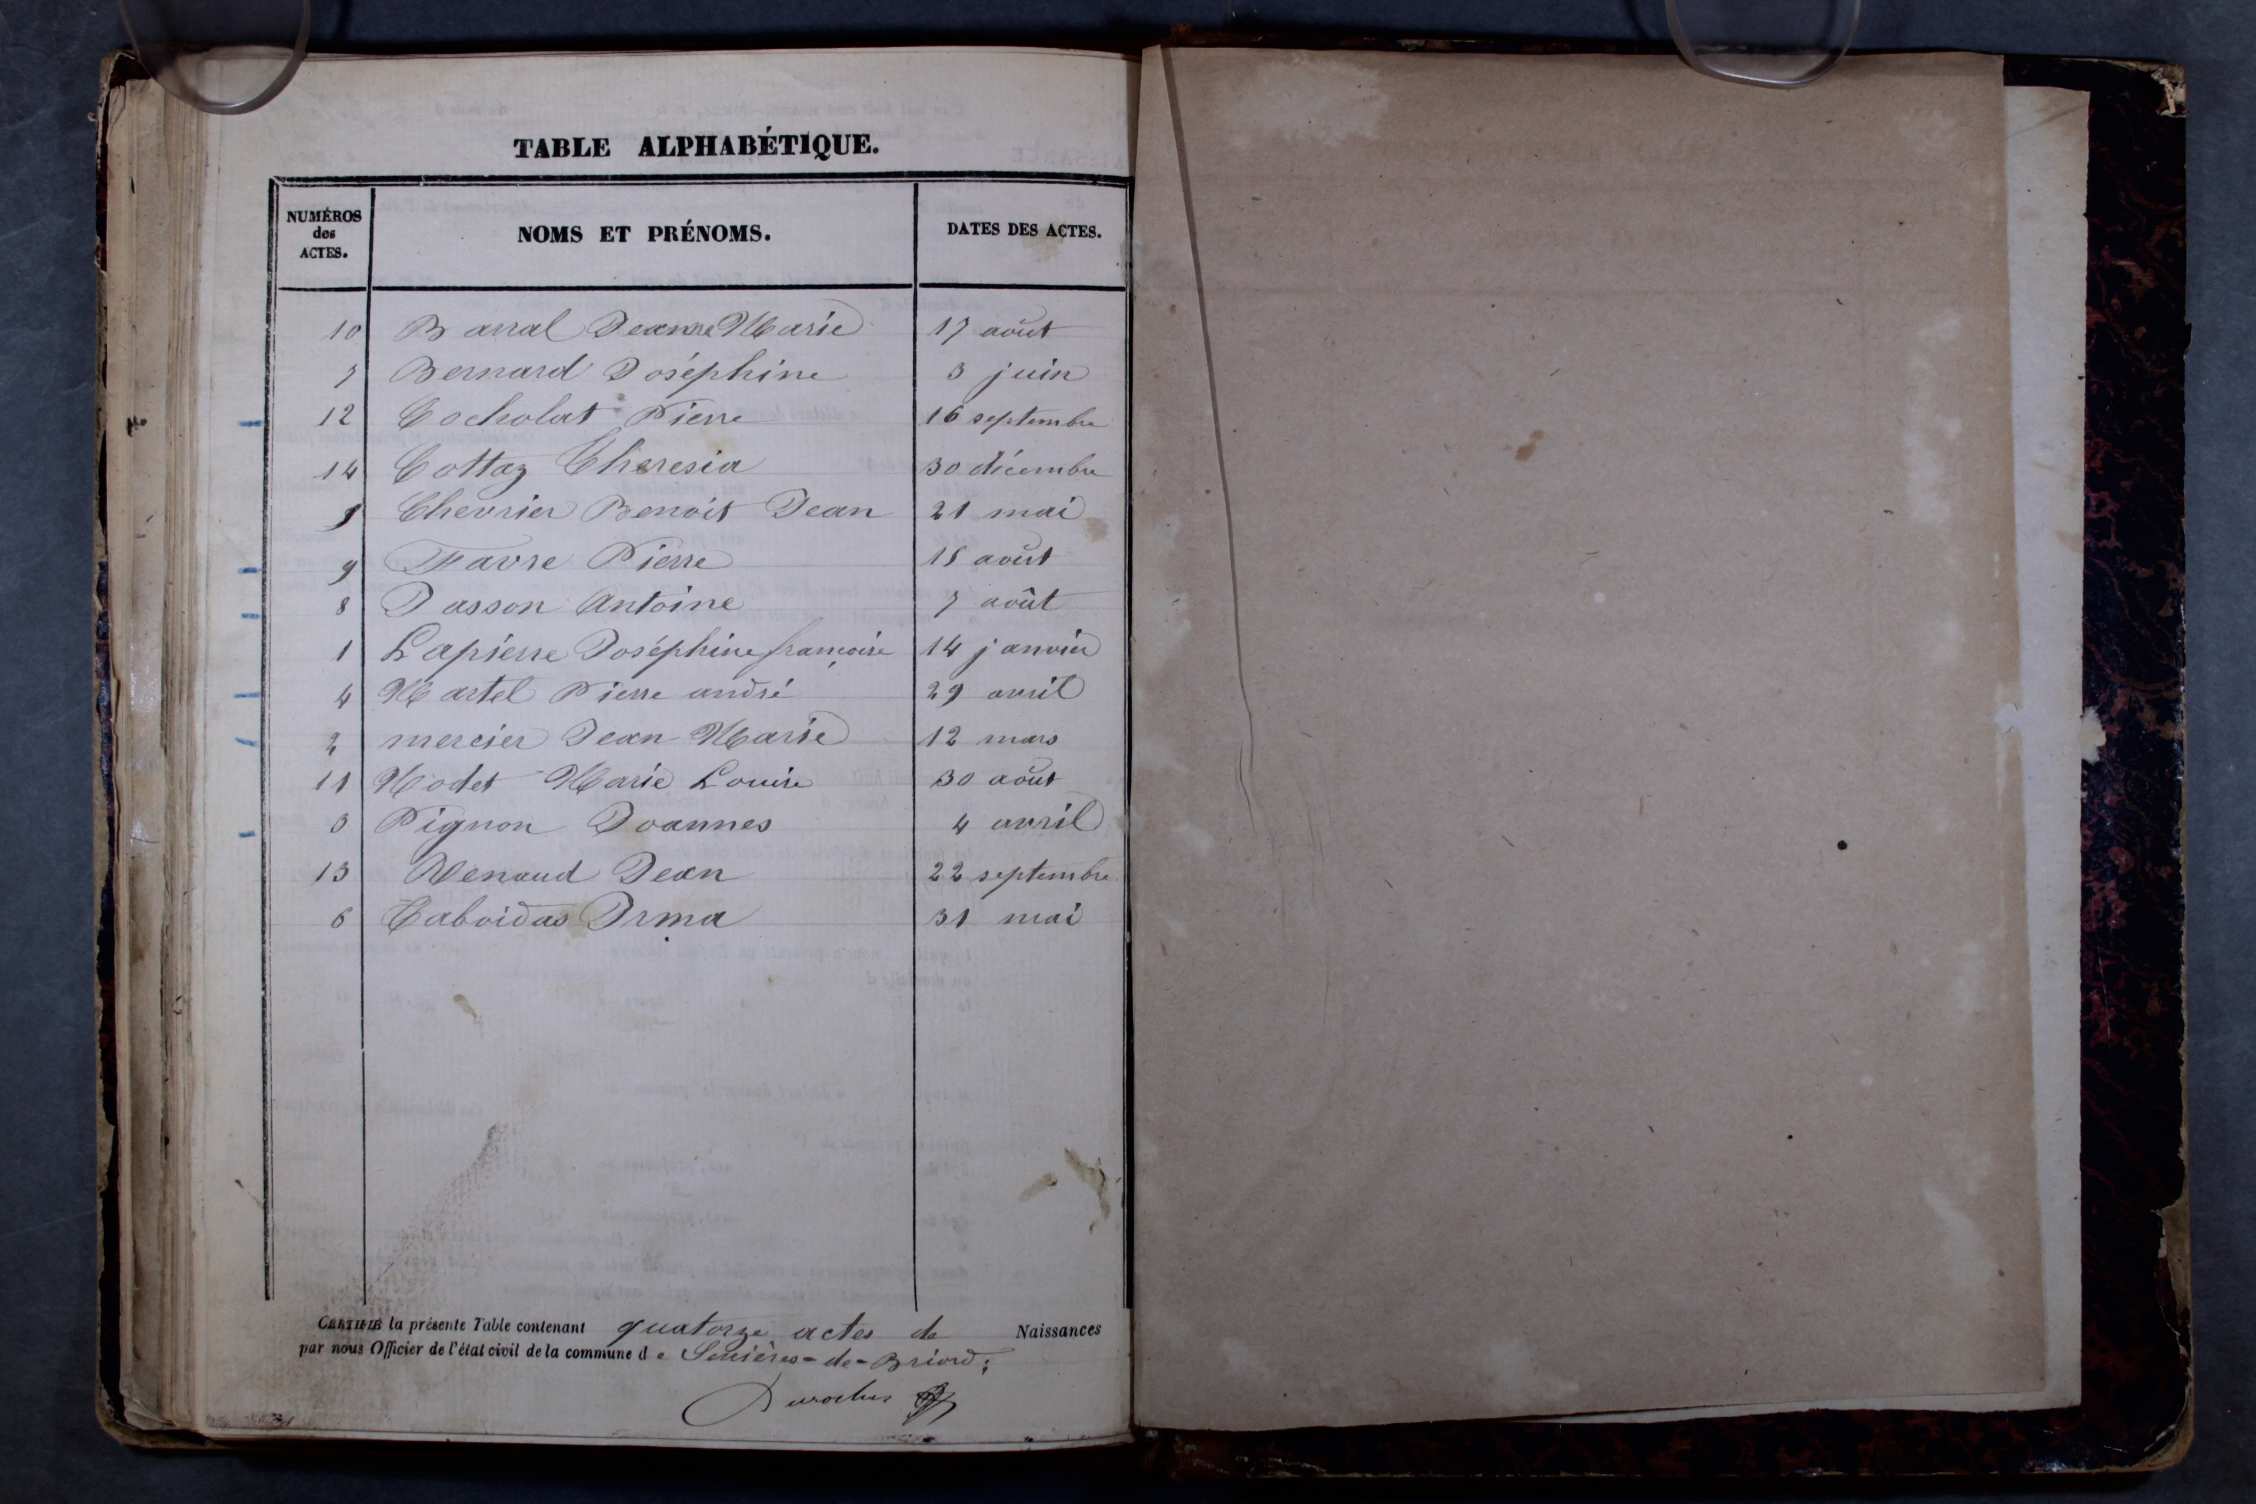 TABLE ALPHABÉTIQUE.
NUMÉROS des ACTES. NOMS ET PRÉNOMS. DATES DES ACTES.
10 Barral Jeanne Marie 17 août
7 Bernard Joséphine 3 juin
12 Cocholat Pierre 16 septembre
14 Cottaz Theresia 30 décembre
5 Chevrier Benoit Jean 21 mai
9 Favre Pierre 15 août
8 Jasson Antoine 7 août
1 Lapierre Joséphine françoise 14 janvier
4 Martel Pierre andré 29 avril
2 mercier Jean Marie 12 mars
11 Modet Marie Louise 30 août
3 Pignon Joannes 4 avril
13 Renaud Jean 22 septembre
6 Taboidas Irma 31 mai
CERTIFIÉ la présente Table contenant quatorze actes de Naissances
par nous Officier de l'état civil de la commune de Serrières-de-Briord;